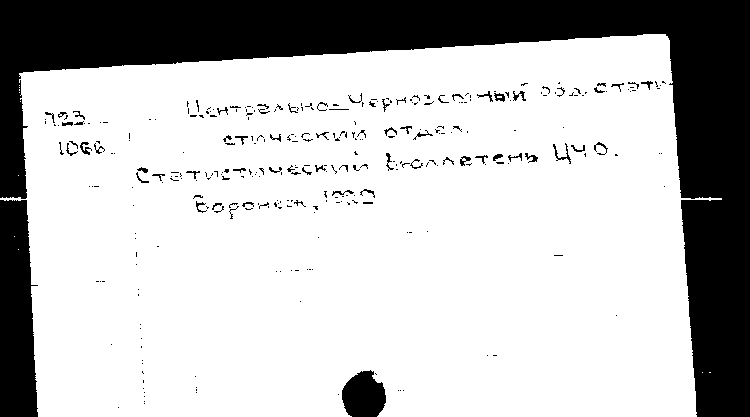 П23 Центрально-Черноземный обл. стати-
1066 стический отдел.
Статистический бюллетень ЦЧО.
Воронеж,